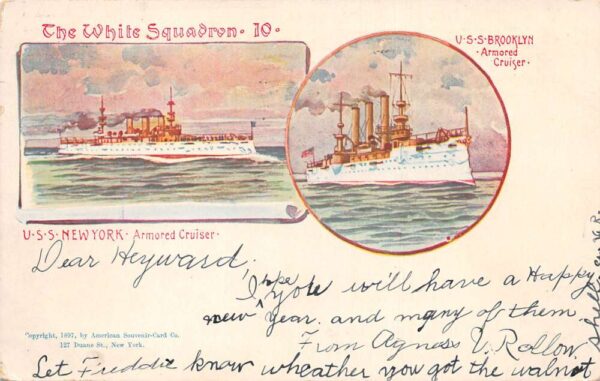 The White Squadron · 10 ·
U·S·S·BROOKLYN
· Armored
Cruiser ·
U·S·S· NEW YORK · Armored Cruiser ·
Dear Heyward,
I hope you will have a Happy
new Year. and many of them
From Agness V. Rollow
Copyright, 1897, by American Souvenir-Card Co.
127 Duane St., New York.
Let Freddie know wheather you got the walnut
shells